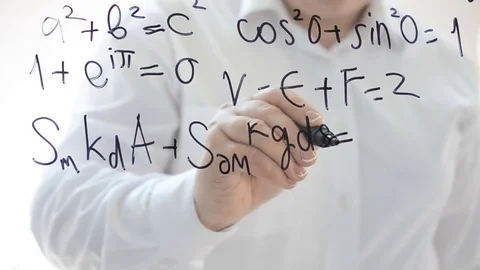 a² + b² = c² cos²0 + sin²0 = 1
1 + e^iπ = 0 V - E + F = 2
S_M K dA + S_∂M Kg ds =